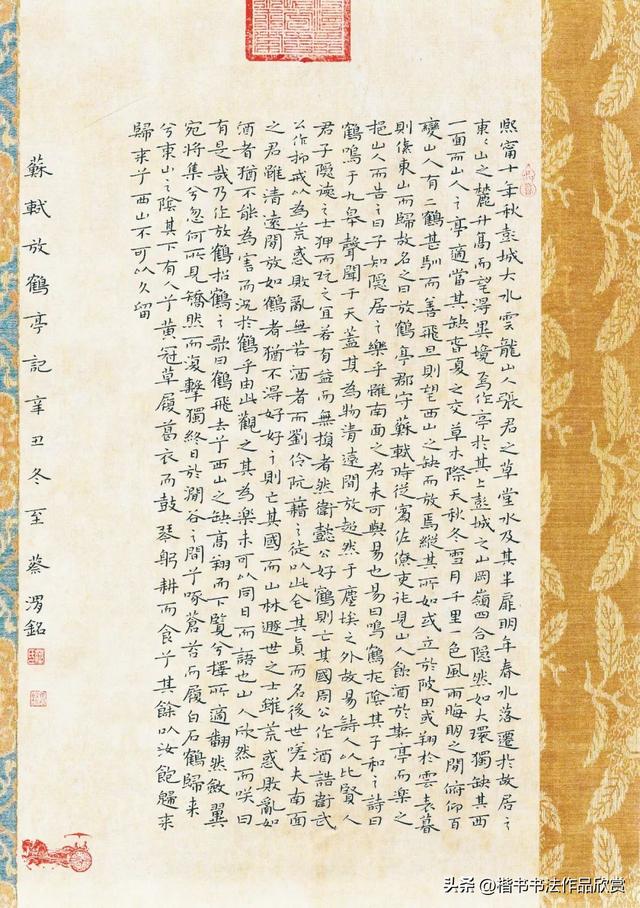 熙甯十年秋彭城大水雲龍山人張君之草堂水及其半扉明年春水落遷於故居之
東々山之麓升高而望得異境焉作亭於其上彭城之山岡嶺四合隱然如大環獨缺其西
一面而山人之亭適當其缺春夏之交草木際天秋冬雪月千里一色風雨晦明之間俯仰百
變山人有二鶴甚馴而善飛旦則望西山之缺而放焉縱其所如或立於陂田或翔於雲表暮
則傃東山而歸故名之曰放鶴亭郡守蘇軾時從賓佐僚吏往見山人飲酒於斯亭而樂之
挹山人而告之曰子知隱居之樂乎雖南面之君未可與易也易曰鳴鶴在陰其子和之詩曰
鶴鳴于九皋聲聞于天蓋其為物清遠閒放超然于塵埃之外故易詩人以比賢人
君子隱德之士狎而玩之宜若有益而無損者然衛懿公好鶴則亡其國周公作酒誥衛武
公作抑戒以為荒惑敗亂無若酒者而劉伶阮籍之徒以此全其真而名後世嗟夫南面
之君雖清遠閒放如鶴者猶不得好好之則亡其國而山林遯世之士雖荒惑敗亂如
酒者猶不能為害而況於鶴乎由此觀之其為樂未可以同日而語也山人欣然而笑曰
有是哉乃作放鶴招鶴之歌曰鶴飛去兮西山之缺高翔而下覽兮擇所適翻然斂翼
宛將集兮忽何所見矯然而復擊獨終日於澗谷之間兮啄蒼苔而履白石鶴歸來
兮東山之陰其下有人兮黃冠草履葛衣而鼓琴躬耕而食兮其餘以汝飽歸來
歸來兮西山不可以久留
蘇軾放鶴亭記辛丑冬至蔡渭銘
头条 @楷书书法作品欣赏